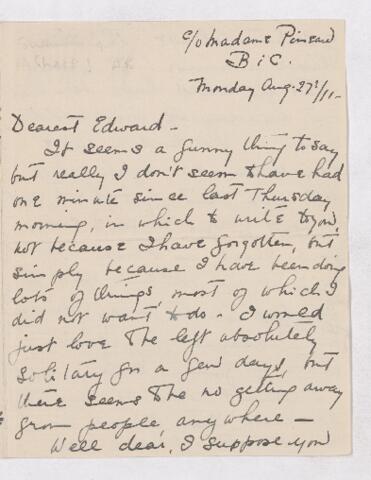 c/o Madame Pineau
Bic.
Monday Aug. 27th/11-
Dearest Edward -
It seems a funny thing to say
but really I don't seem to have had
one minute since last Thursday
morning, in which to write to you,
not because I have forgotten, but
simply because I have been doing
lots of things, most of which I
did not want to do - I would
just love to be left absolutely
solitary for a few days, but
there seems to be no getting away
from people anywhere -
Well dear, I suppose you